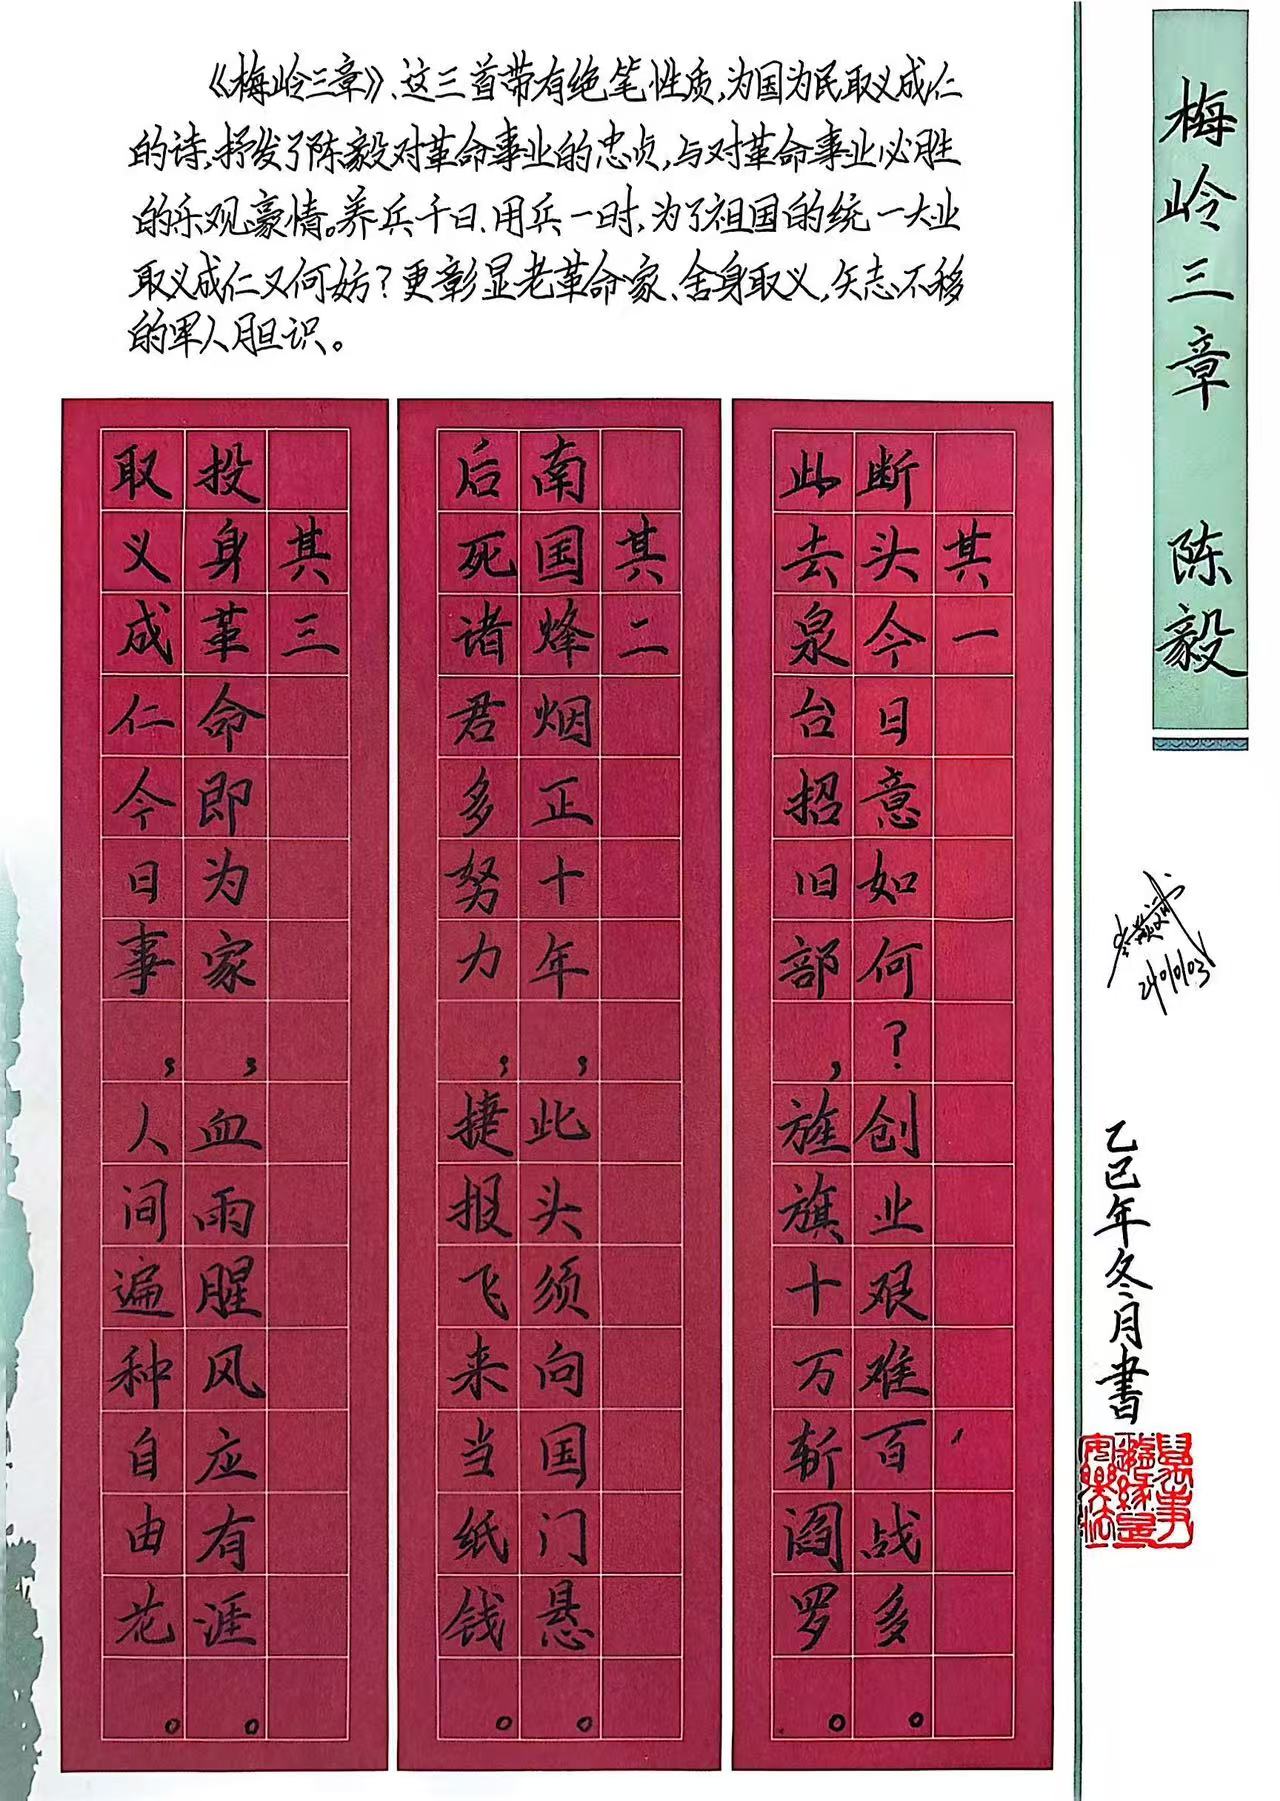 梅岭三章 陈毅
《梅岭三章》、这三首带有绝笔性质,为国为民取义成仁
的诗、抒发了陈毅对革命事业的忠贞,与对革命事业必胜
的乐观豪情。养兵千日、用兵一时,为了祖国的统一大业
取义成仁又何妨?更彰显老革命家、舍身取义,矢志不移
的军人胆识。
其一
断头今日意如何?创业艰难百战多。
此去泉台招旧部,旌旗十万斩阎罗。
其二
南国烽烟正十年,此头须向国门悬。
后死诸君多努力,捷报飞来当纸钱。
其三
投身革命即为家,血雨腥风应有涯。
取义成仁今日事,人间遍种自由花。
乙巳年冬月書